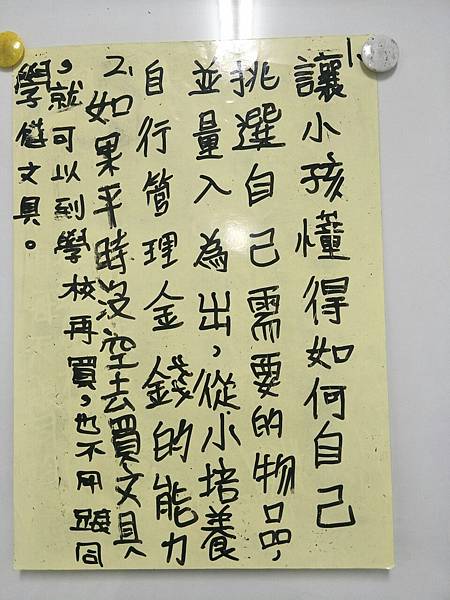 1.讓小孩懂得如何自己
挑選自己需要的物品,
並量入為出,從小培養
自行管理金錢的能力
2.如果平時沒空去買文具
,就可以到學校再買,也不用跟同
學借文具。